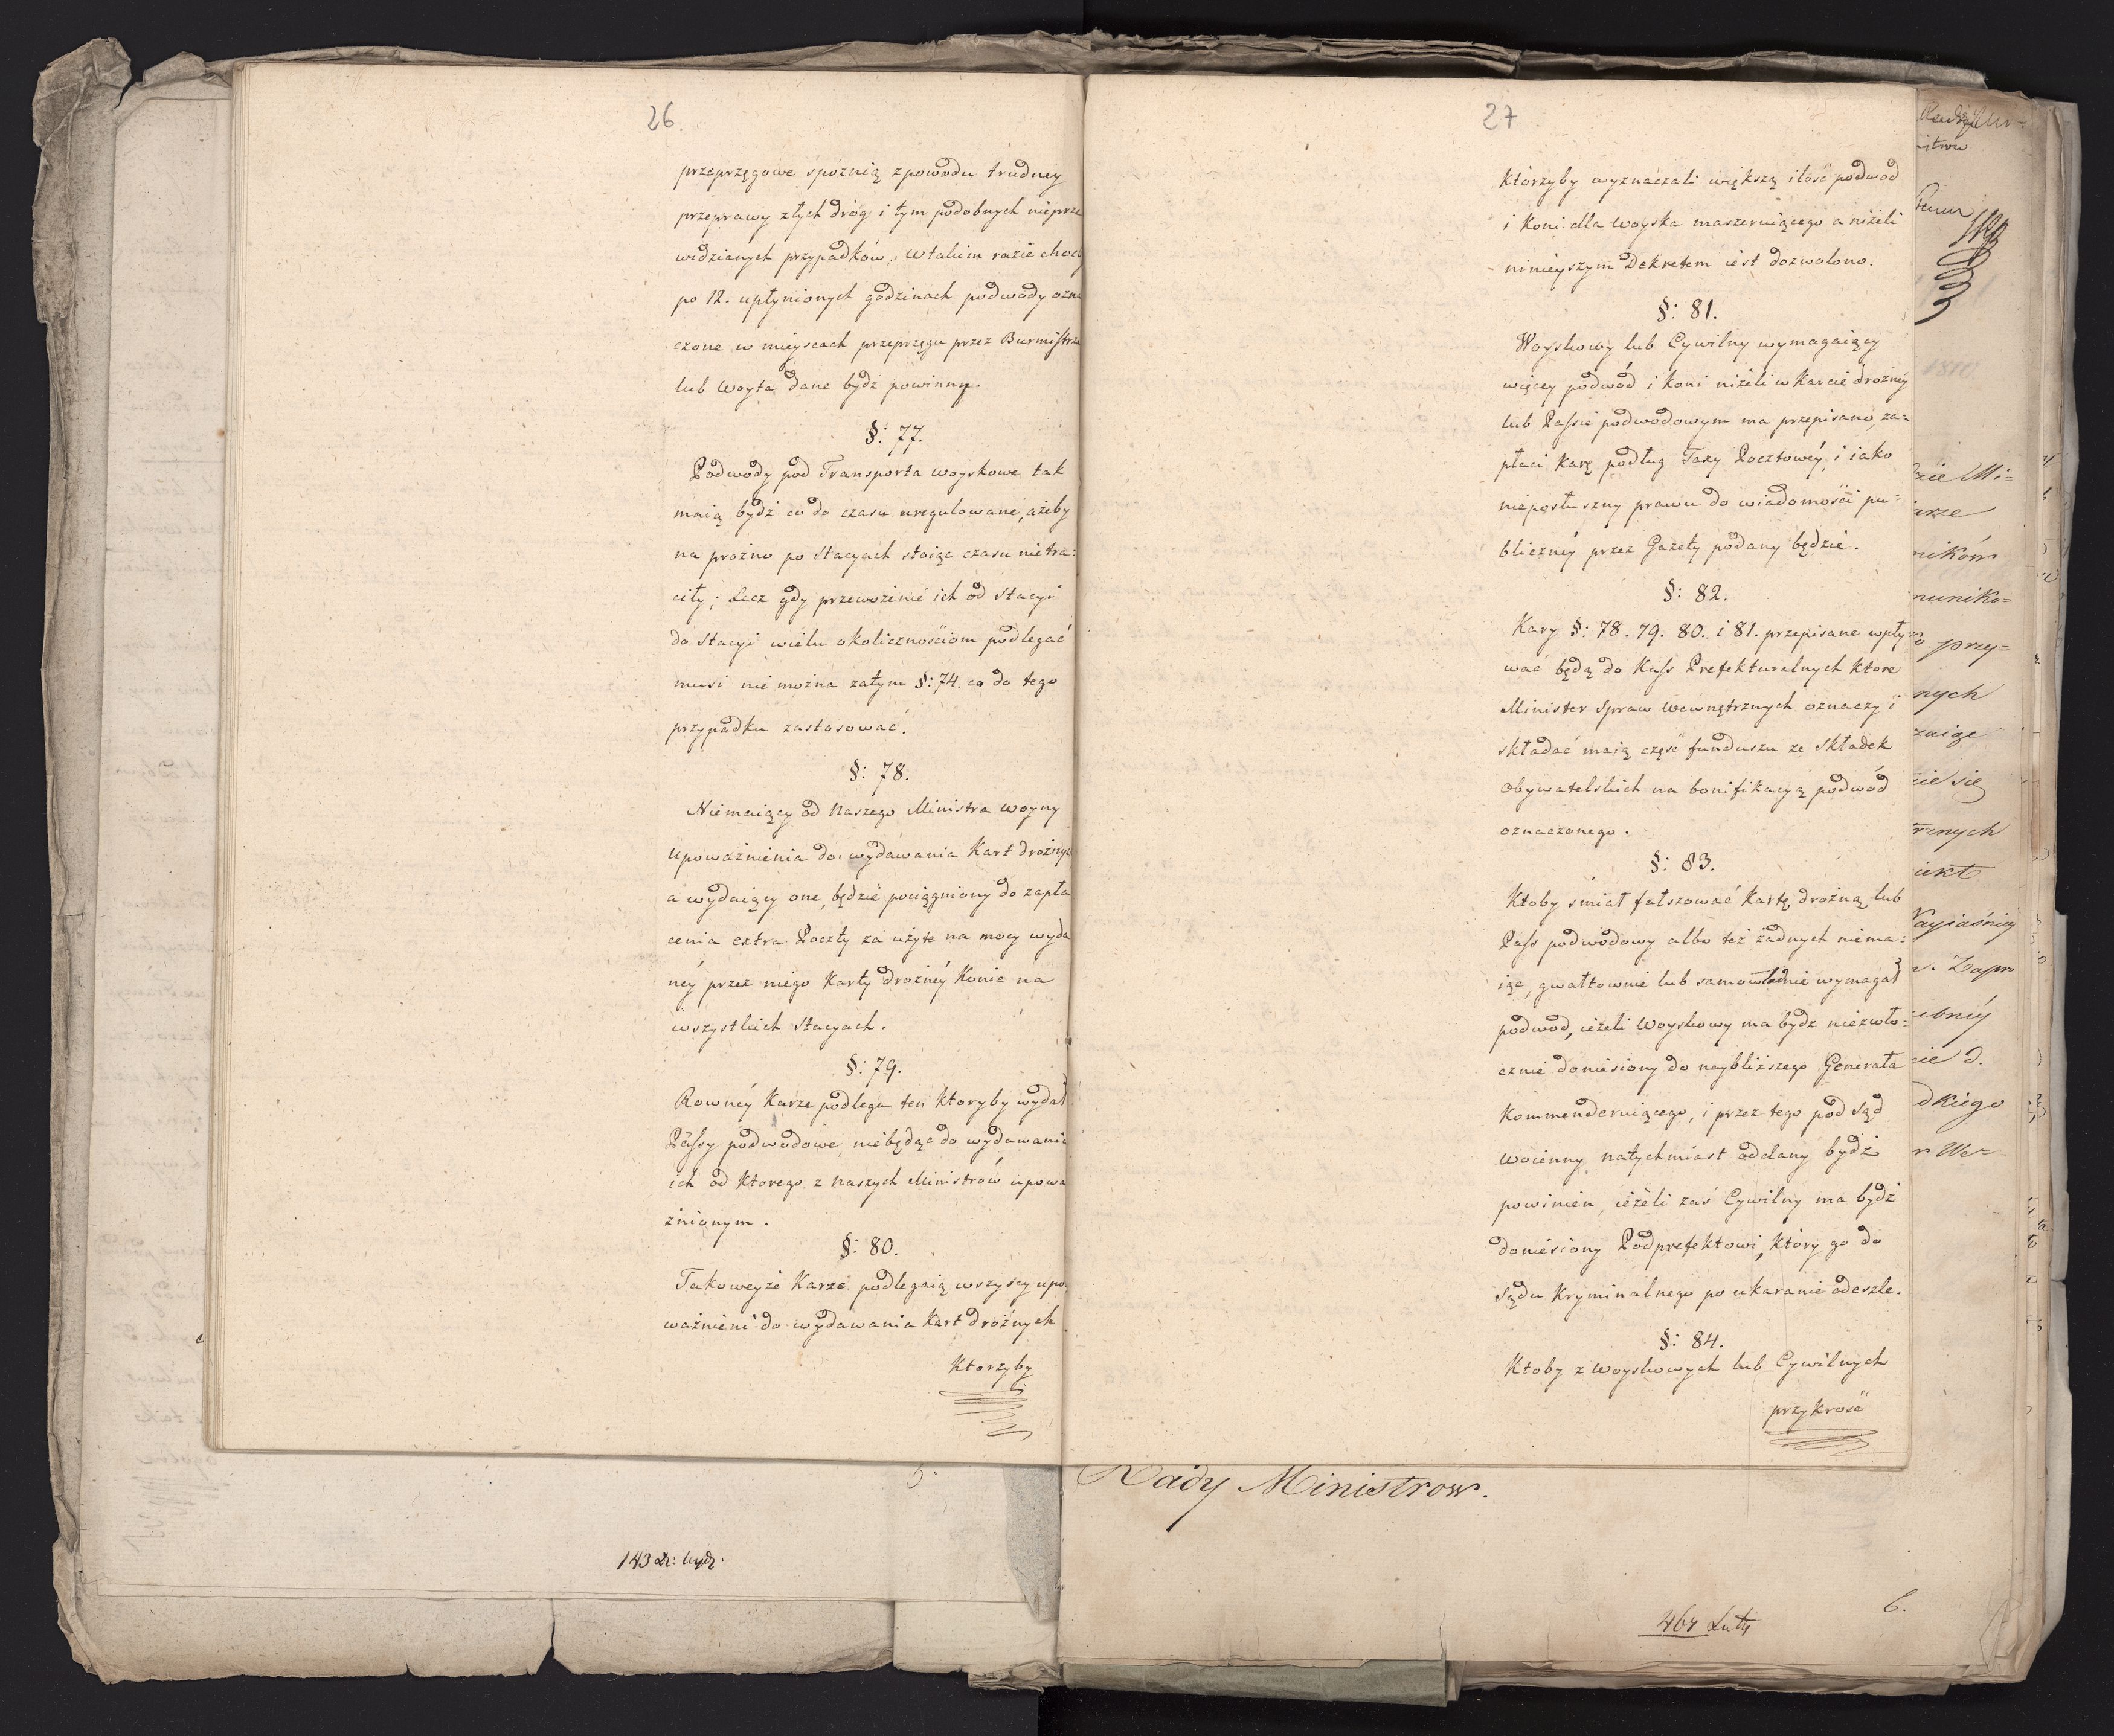 26.
przeprzęgowe spoznią zpowodu trudney
przeprawy złych dróg i tym podobnych nieprze
widzianych przypadków, wtakim razie choćby
po 12. upłynionych godzinach podwody ozna
czone w mieyscach przeprzęgu przez Burmistrza
lub Woyta dane bydź powinny.
§: 77.
Podwody pod Transporta woyskowe tak
maią bydź co do czasu uregulowane, ażeby
na prożno po Stacyach stoiąc czasu nietra=
ciły; Lecz gdy przewożenie ich od Stacyi
do Stacyi wielu okolicznościom podlegać
musi nie można zatym §: 74. co do tego
przypadku zastosować.
§: 78.
Niemaiący od Naszego Ministra woyny
upoważnienia do wydawania Kart drożnych
a wydaiący one, będzie pociągniony do zapła
cenia extra Poczty za użyte na mocy wyda
néy przez niego Karty drożnéy Konie na
wszystkich Stacyach.
§: 79.
Rownéy Karze podlega ten ktoryby wydał
Passy podwodowe, niebędąc do wydawania
ich od Ktorego z Naszych Ministrów upowa
żnionym.
§: 80.
Takoweyże Karze podlegaią wszyscy upo
ważnieni do wydawania Kart drożnych
Ktorzyby
27
Ktorzyby wyznaczali większą ilość podwod
i Koni dla Woyska maszeruiącego a niżeli
ninieyszym Dekretem iest dozwolono.
§: 81.
Woyskowy lub Cywilny wymagaiący
więcey podwód i Koni niżeli w Karcie drożnéy
lub Passie podwodowym ma przepisano, za=
płaci Karę podług Taxy Pocztowéy, i iako
nieposłuszny prawu do wiadomości pu=
blicznéy przez Gazety podany będzie.
§: 82.
Kary §: 78. 79. 80. i 81. przepisane wpły
wać będą do Kass Prefekturalnych Ktore
Minister Spraw Wewnętrznych oznaczy i
składać maią część funduszu ze Składek
Obywatelskich na bonifikacyą podwód
oznaczonego.
§: 83.
Ktoby śmiał fałszować Kartę drożną lub
Pass podwodowy albo też żadnych niema=
iąc, gwałtownie lub samowładnie wymagał
podwod, ieżeli Woyskowy ma bydz niezwło=
cznie doniesiony do naybliższego Generała
Kommenderuiącego, i przez tego pod Sąd
woienny natychmiast oddany bydż
powinien, ieżeli zaś Cywilny ma bydź
doniesiony Podprefektowi, Który go do
Sądu Kryminalnego po ukaranie odeszle.
§: 84.
Ktoby z Woyskowych lub Cywilnych
przykrość
Rady Ministrow.
5.
6.
ników
muniko=
przy=
nych
zaiąc
zie się
dkiego